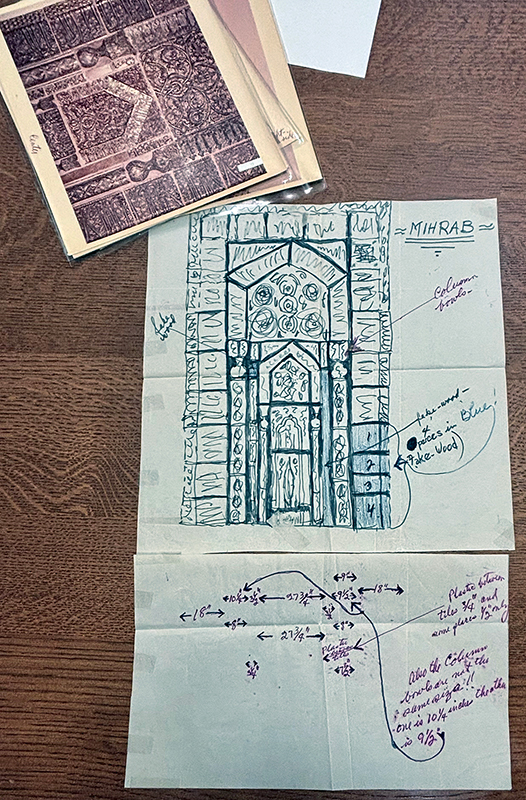 ≈ MIHRAB ≈
Column
bowls-
fake-wood-
4
pieces in Blue!
(Fake-Wood)
fake
wood
1
2
3
4
9"
18"
10¼"
37¾"
9½"
18"
8"
9"
27¾"
Plastic
7½"
Plastic between
tiles ¾" and
some places ½" only
Also the Column
bowls are not the
same size!!
one is 10¼ inches the other
is 9½"